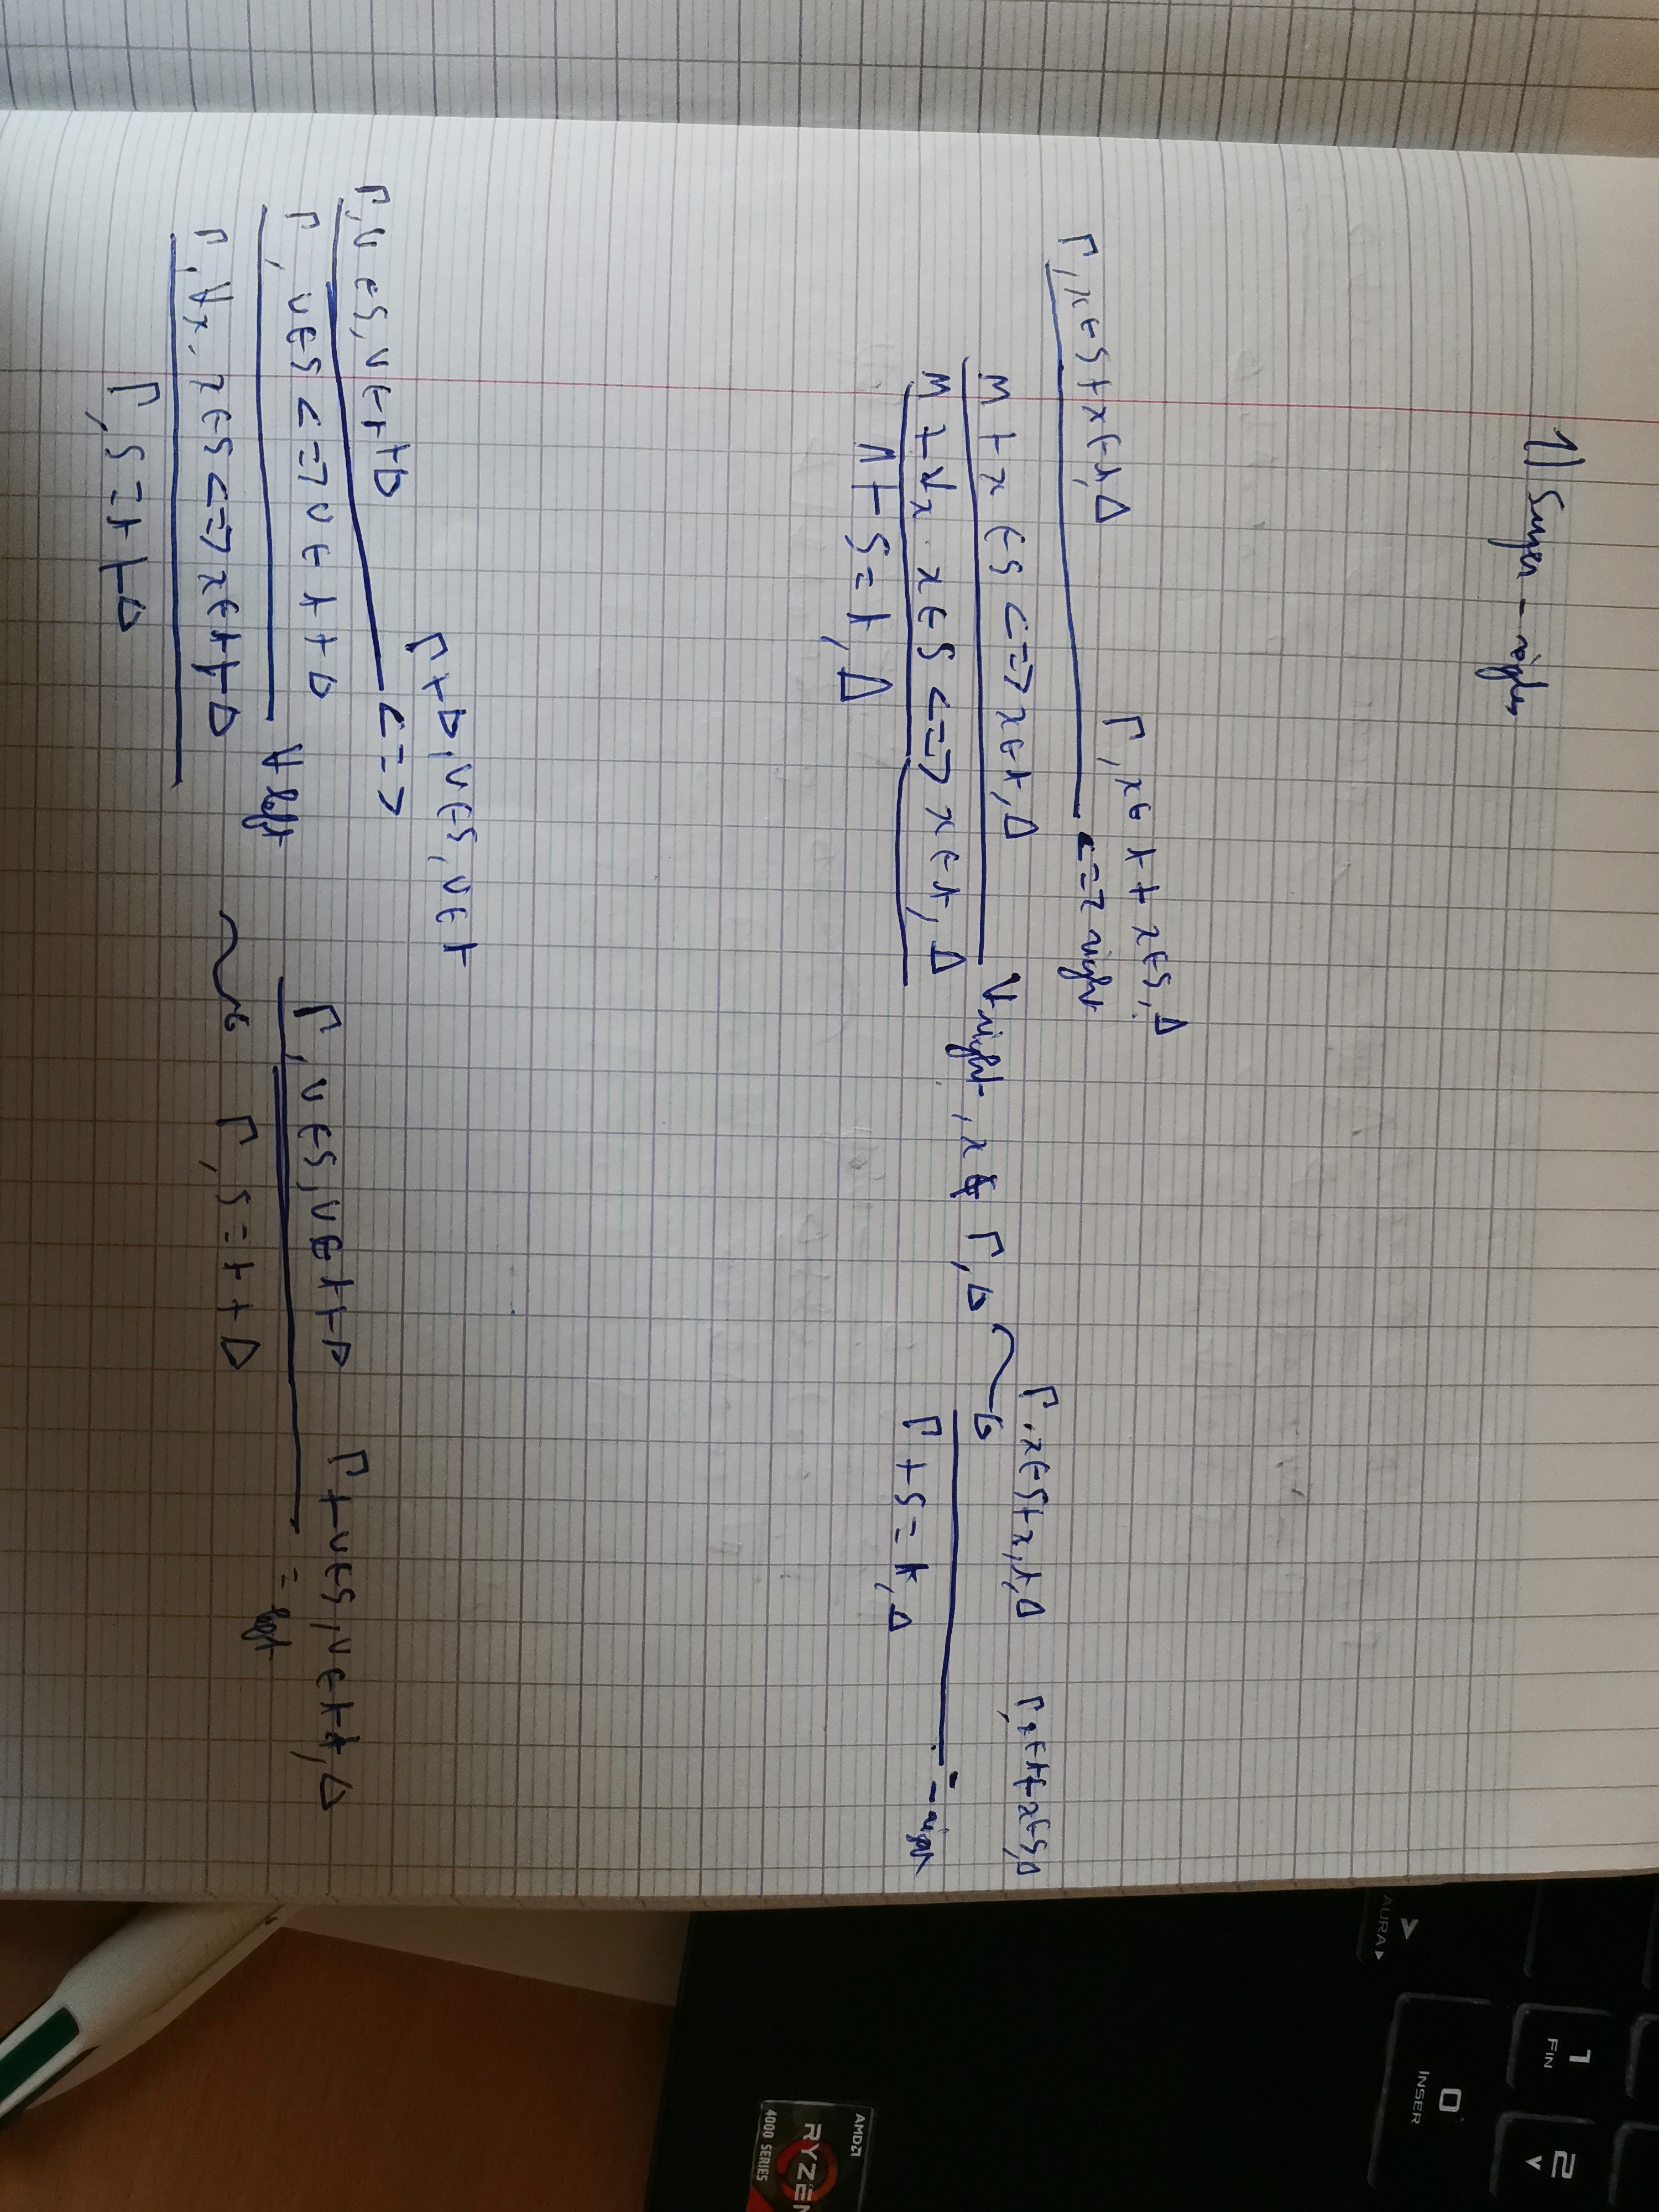 1) Super - règles
Γ, x ∈ S ⊢ x ∈ t, Δ    Γ, x ∈ t ⊢ x ∈ S, Δ
<=> right
Γ ⊢ x ∈ S <=> x ∈ t, Δ
∀right, x ∉ Γ, Δ
Γ ⊢ ∀x. x ∈ S <=> x ∈ t, Δ
Γ ⊢ S = t, Δ
Γ, x ∈ S ⊢ x, t, Δ    Γ, x ∈ t ⊢ x ∈ S, Δ
= right
Γ ⊢ S = t, Δ
Γ, v ∈ S, v ∈ t ⊢ Δ    Γ ⊢ Δ, v ∈ S, v ∈ t
<=>
Γ, v ∈ S <=> v ∈ t ⊢ Δ
∀ left
Γ, ∀x. x ∈ S <=> x ∈ t ⊢ Δ
Γ, S = t ⊢ Δ
Γ, v ∈ S, v ∈ t ⊢ Δ    Γ ⊢ v ∈ S, v ∈ t, Δ
= left
Γ, S = t ⊢ Δ
1
FIN
2
0
INSER
>
AURA
AMD
RYZEN
4000 SERIES